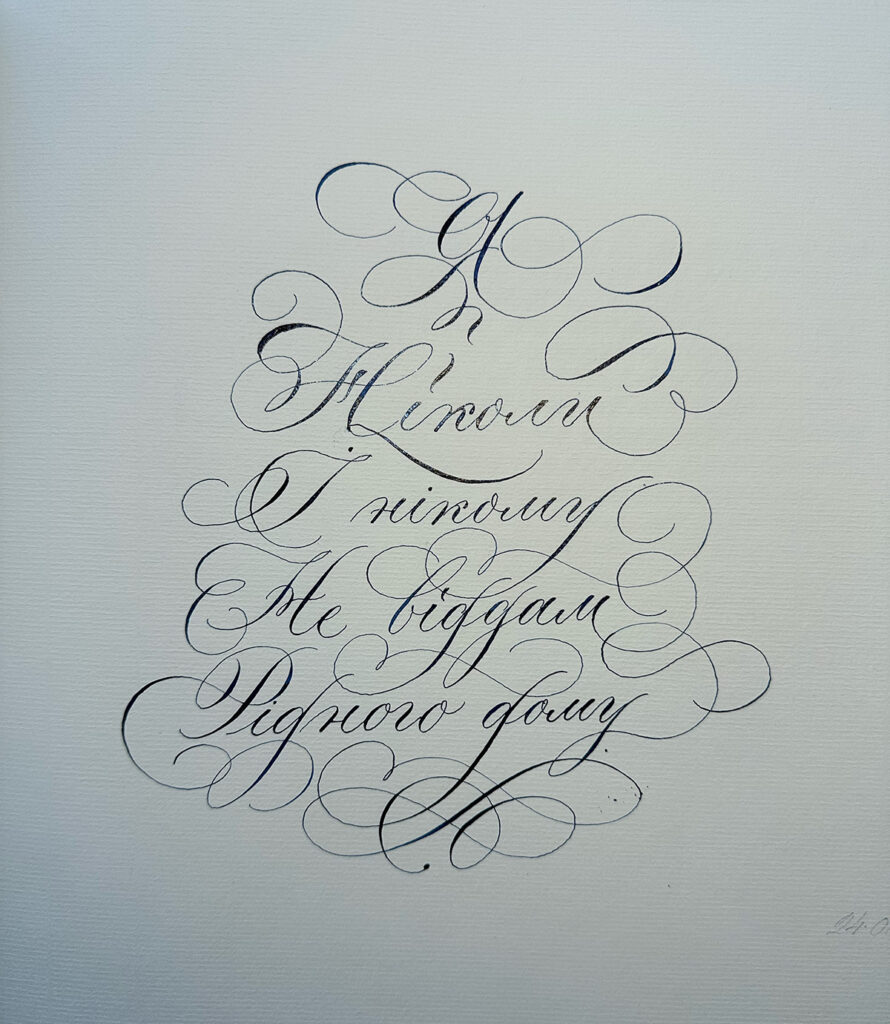 Я
Ніколи
І нікому
Не віддам
Рідного дому